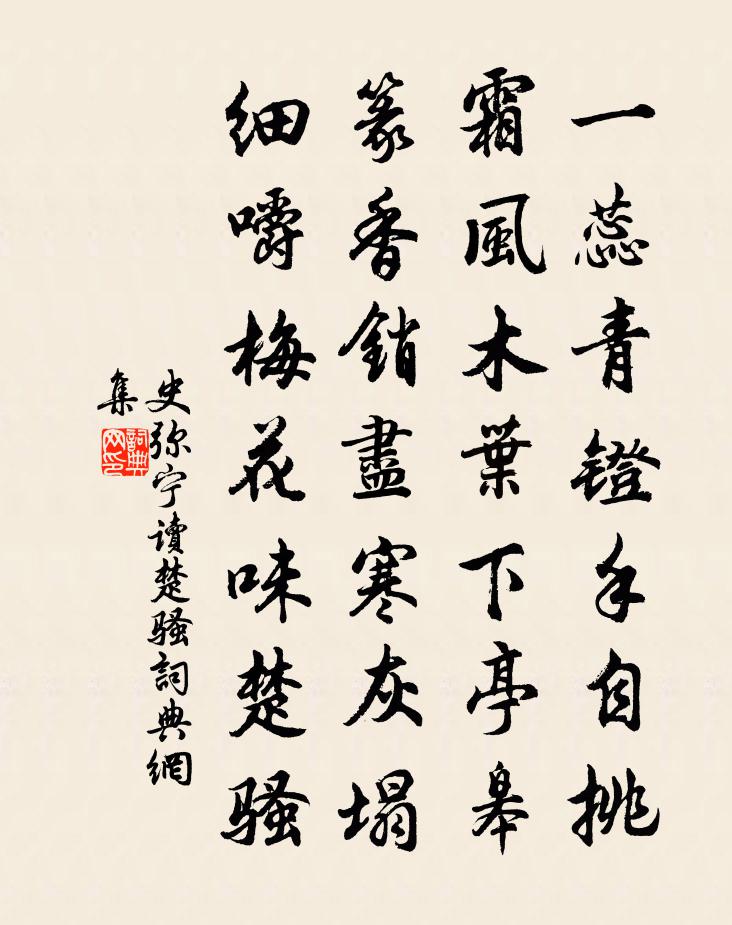 一蕊青鐙手自挑
霜風木葉下亭皋
篆香銷盡寒灰塌
細嚼梅花味楚騷
史弥宁讀楚騷詞典網
集
詞典
网印